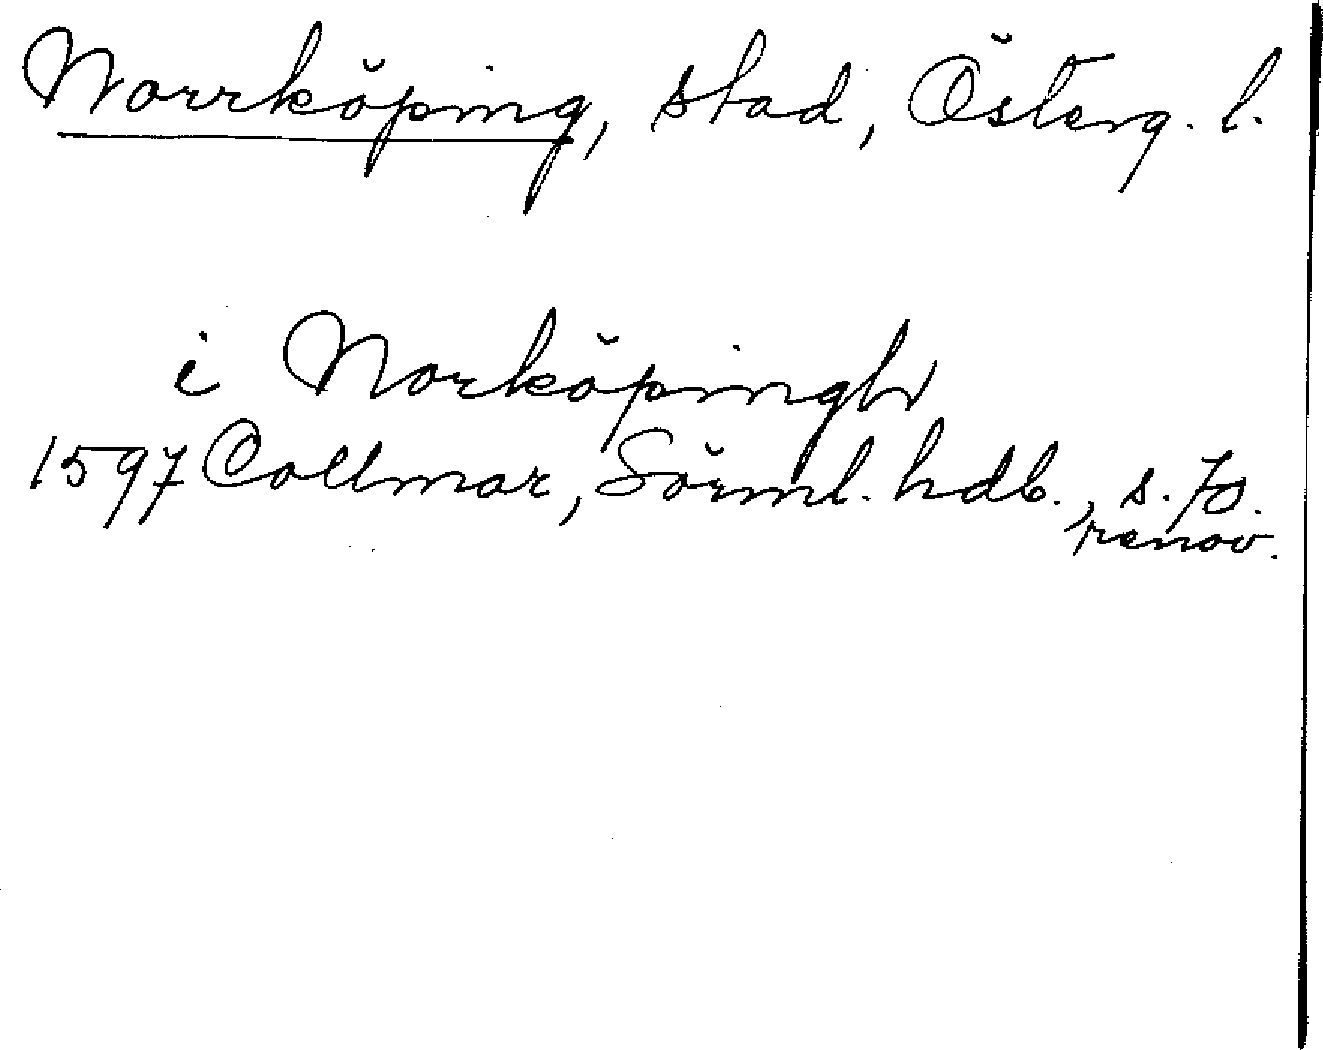 Norrköping, stad, Österg. l.
i Norköpingh
1597 Collmar, Sörml. hdb., s. 70.
renov.